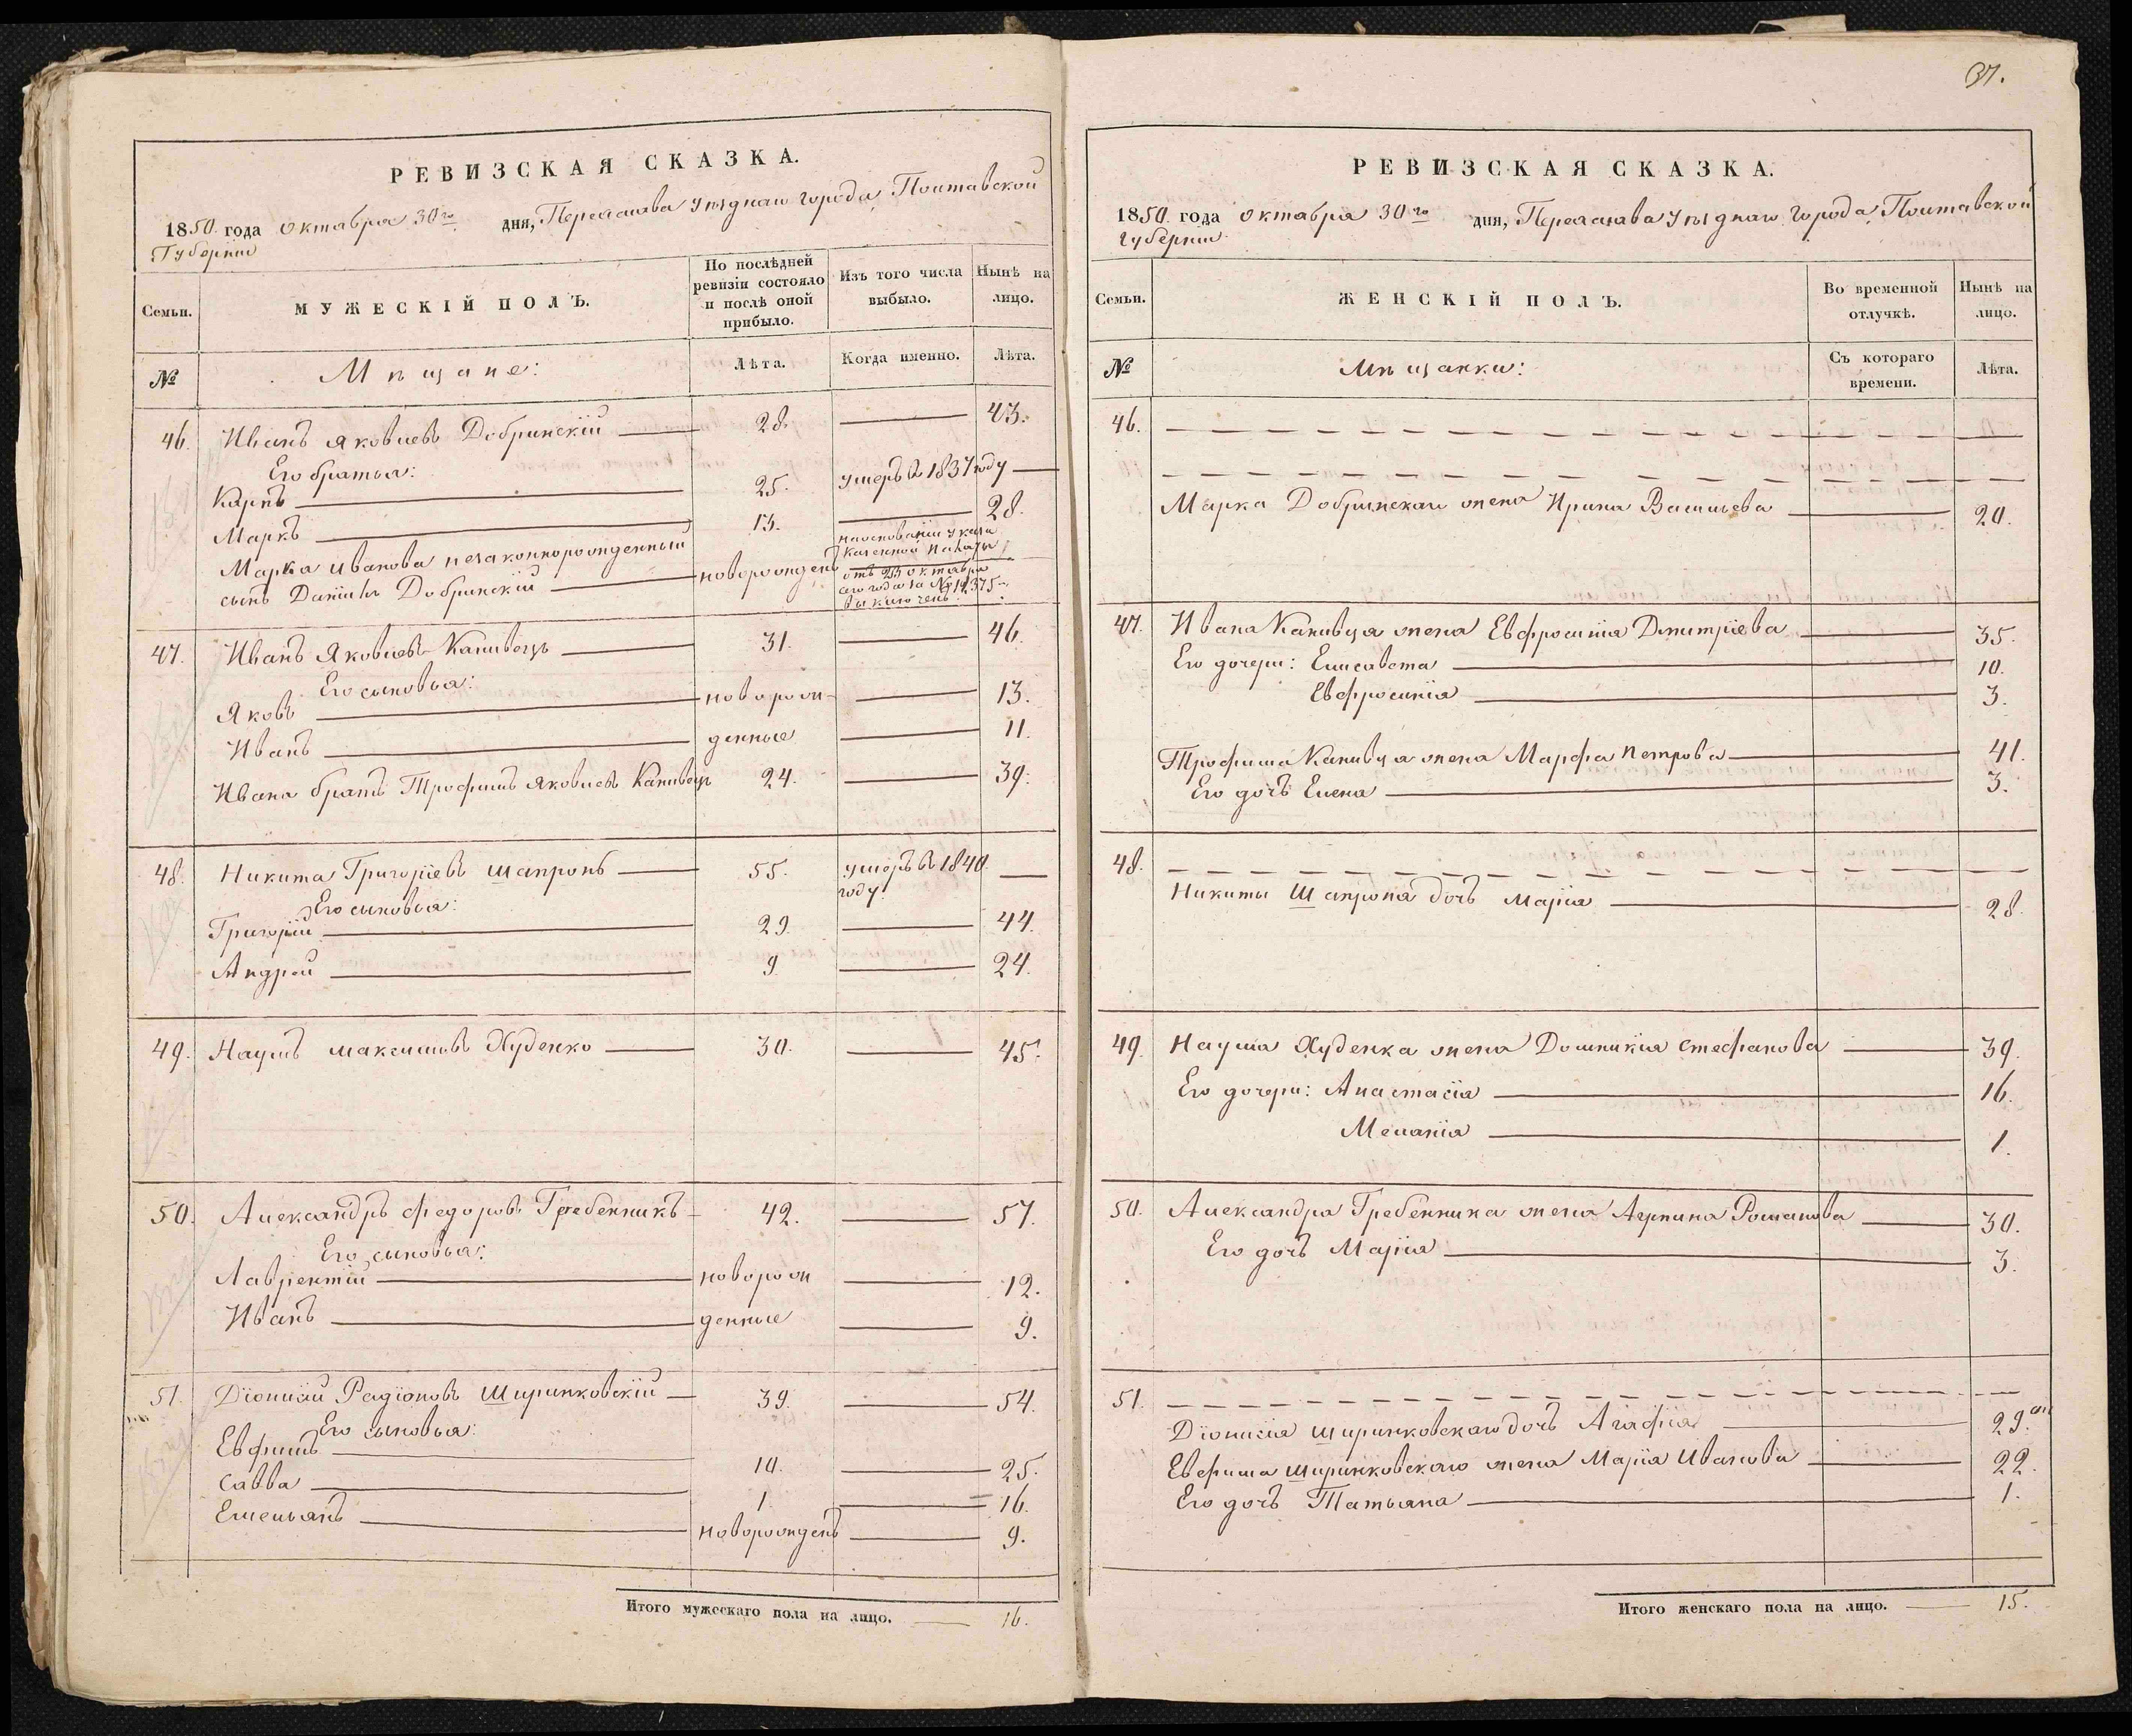 РЕВИЗСКАЯ СКАЗКА.
1850 года октября 30го дня, Переяслава уѣзднаго города, Полтавской
Губерніи
Семьи.
МУЖЕСКІЙ ПОЛЪ.
По послѣдней ревизіи состояло и послѣ оной прибыло.
Изъ того числа выбыло.
Нынѣ на лицо.
№
Мѣщане:
Лѣта.
Когда именно.
Лѣта.
46. Иванъ Яковлевъ Добринскій 28. 43.
Его братья:
Карпъ 25. умеръ въ 1837 году
Маркъ 13. 28.
Марка Иванова незаконнорожденный
сынъ Даніилъ Добринскій новорожденъ
на основаніи указа
казенной палаты
отъ 25 октября
сего года за № 19375
выключенъ.
47. Иванъ Яковлевъ Канивецъ 31. 46.
Его сыновья:
Яковъ новорож- 13.
Иванъ денные 11.
Ивана братъ Трофимъ Яковлевъ Канивецъ 24. 39.
48. Никита Григоріевъ Шапронъ 55. умеръ въ 1840.
году.
Его сыновья:
Григорій 29. 44.
Андрей 9. 24.
49. Наумъ Максимовъ Худенко 30. 45.
50. Александръ Федоровъ Гребенникъ 42. 57.
Его сыновья:
Лаврентій новорож 12.
Иванъ денные 9.
51. Діонисій Радіоновъ Ширинковскій 39. 54.
Его сыновья:
Евфимъ 10. 25.
Савва 1. 16.
Емельянъ новорожденъ 9.
Итого мужескаго пола на лицо. 16.
37.
РЕВИЗСКАЯ СКАЗКА.
1850 года октября 30го дня, Переяслава уѣзднаго города, Полтавской
губерніи
Семьи.
ЖЕНСКІЙ ПОЛЪ.
Во временной отлучкѣ.
Нынѣ на лицо.
№
Мѣщанки:
Съ котораго времени.
Лѣта.
46.
Марка Добринскаго жена Ирина Васильева 20.
47. Ивана Канивца жена Евфросинія Дмитріева 35.
Его дочери: Елисавета 10.
Евфросинія 3.
Трофима Канивца жена Марфа Петрова 41.
Его дочь Елена 3.
48.
Никиты Шапрона дочь Марія 28.
49. Наума Худенка жена Домникія Стефанова 39.
Его дочери: Анастасія 16.
Меланія 1.
50. Александра Гребенника жена Агрипина Романова 30.
Его дочь Марія 3.
51.
Діонисія Ширинковскаго дочь Агафія 29.
Евфима Ширинковскаго жена Марія Иванова 22.
Его дочь Татьяна 1.
Итого женскаго пола на лицо. 15.